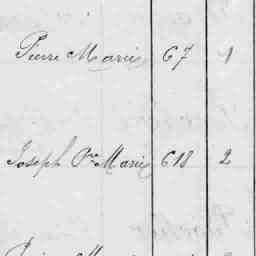 Pierre Marie 67 1
Joseph Pre Marie 618 2